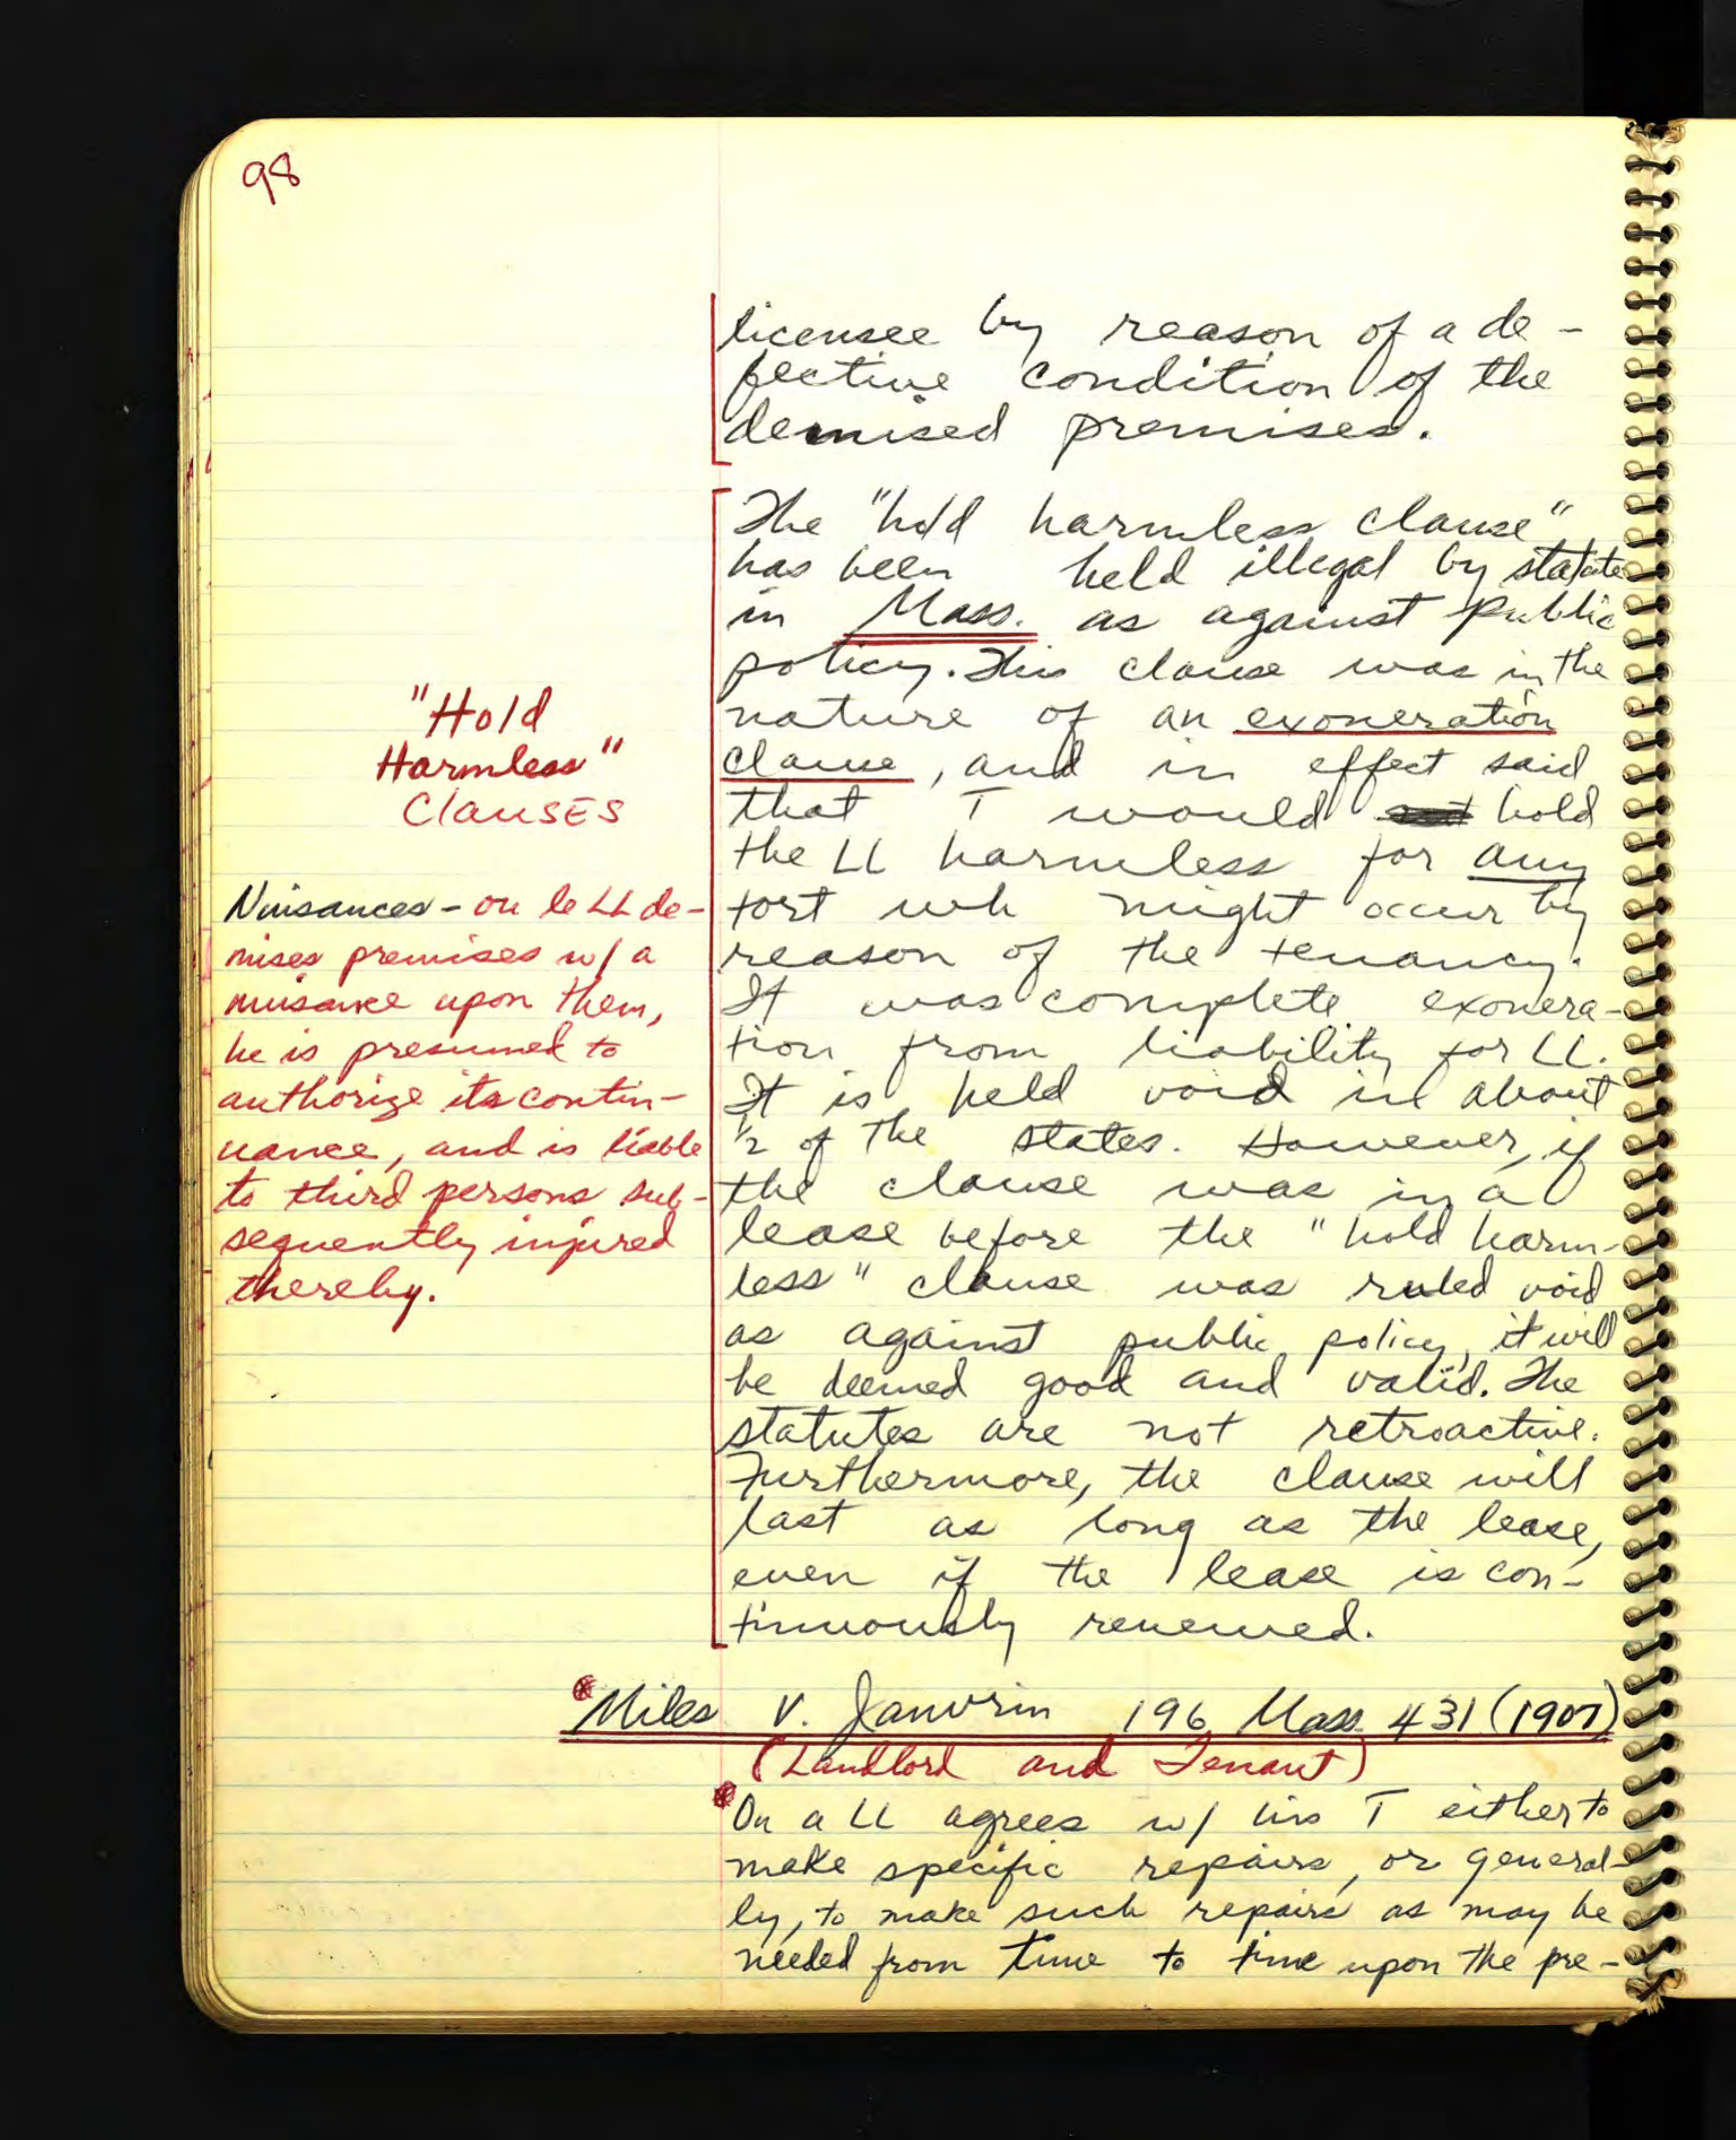 98
licensee by reason of a de-
fective condition of the
demised premises.
The "hold harmless clause"
has been held illegal by statute
in Mass. as against public
policy. This clause was in the
nature of an exoneration
clause, and in effect said
that T would hold
the LL harmless for any
tort wh might occur by
reason of the tenancy.
It was complete exonera-
tion from liability for LL.
It is held void in about
1/2 of the states. However, if
the clause was in a
lease before the "hold harm-
less" clause was ruled void
as against public policy, it will
be deemed good and valid. The
statutes are not retroactive.
Furthermore, the clause will
last as long as the lease,
even if the lease is con-
tinuously renewed.
"Hold
Harmless"
Clauses
Nuisances - LL de-
mises premises w/ a
nuisance upon them,
he is presumed to
authorize its contin-
uance, and is liable
to third persons sub-
sequently injured
thereby.
Miles v. Janvrin 196 Mass. 431 (1907)
(Landlord and Tenant)
On a LL agrees w/ his T either to
make specific repairs, or general-
ly, to make such repairs as may be
needed from time to time upon the pre-